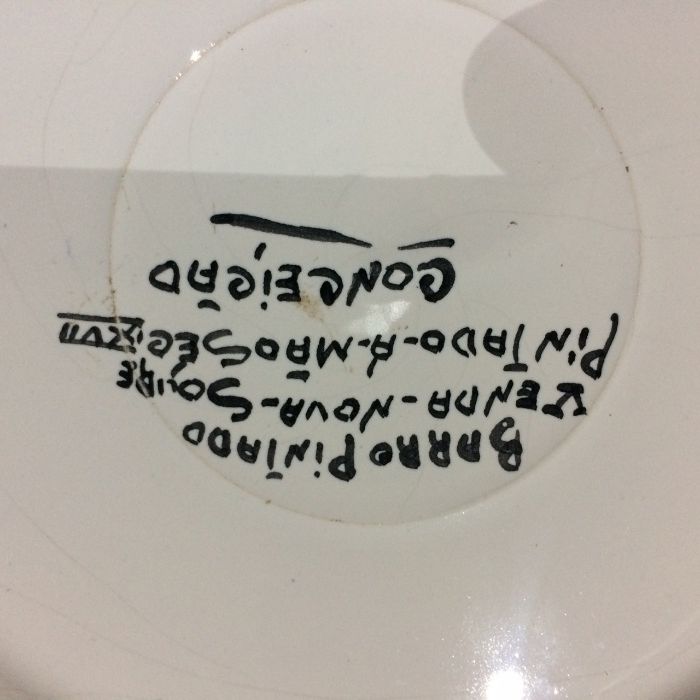 BARRO PINTADO
VENDA-NOVA-SOURE
PINTADO-Á-MÃO SEC XVII
CONCEIÇÃO